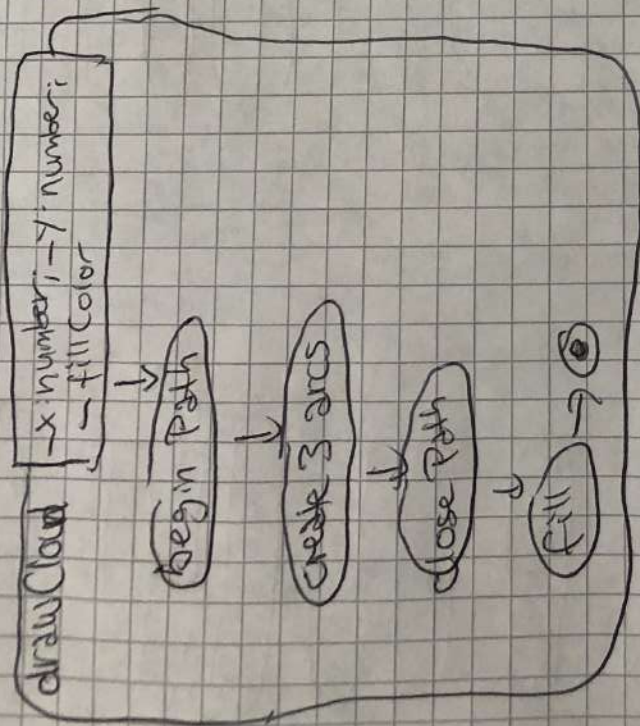 drawCloud
-x:number; -y:number;
- fillColor
begin Path
create 3 arcs
close Path
fill